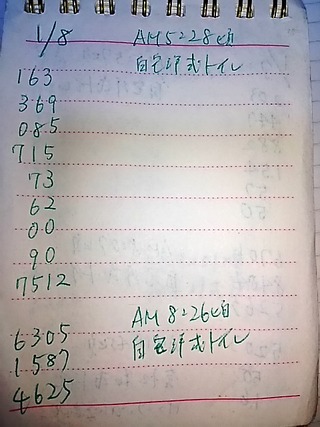 1/8 AM5:28頃
自宅洋式トイレ
163
369
085
715
73
62
00
90
7512
AM 8:26頃
6305
自宅洋式トイレ
1587
4625